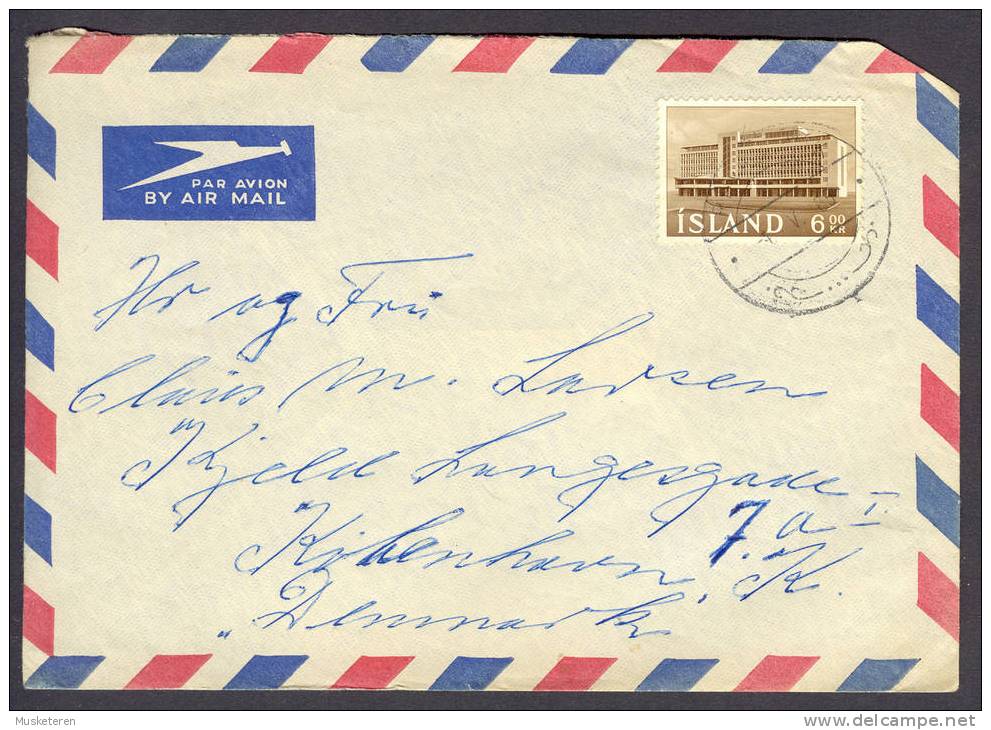 PAR AVION
BY AIR MAIL
ÍSLAND 6 00 KR
Hr og Frú
Claus M. Larsen
Kjeld Langesgade I.
7. a
Köbenhavn. K.
"Denmark
Musketeren
delcampe.net